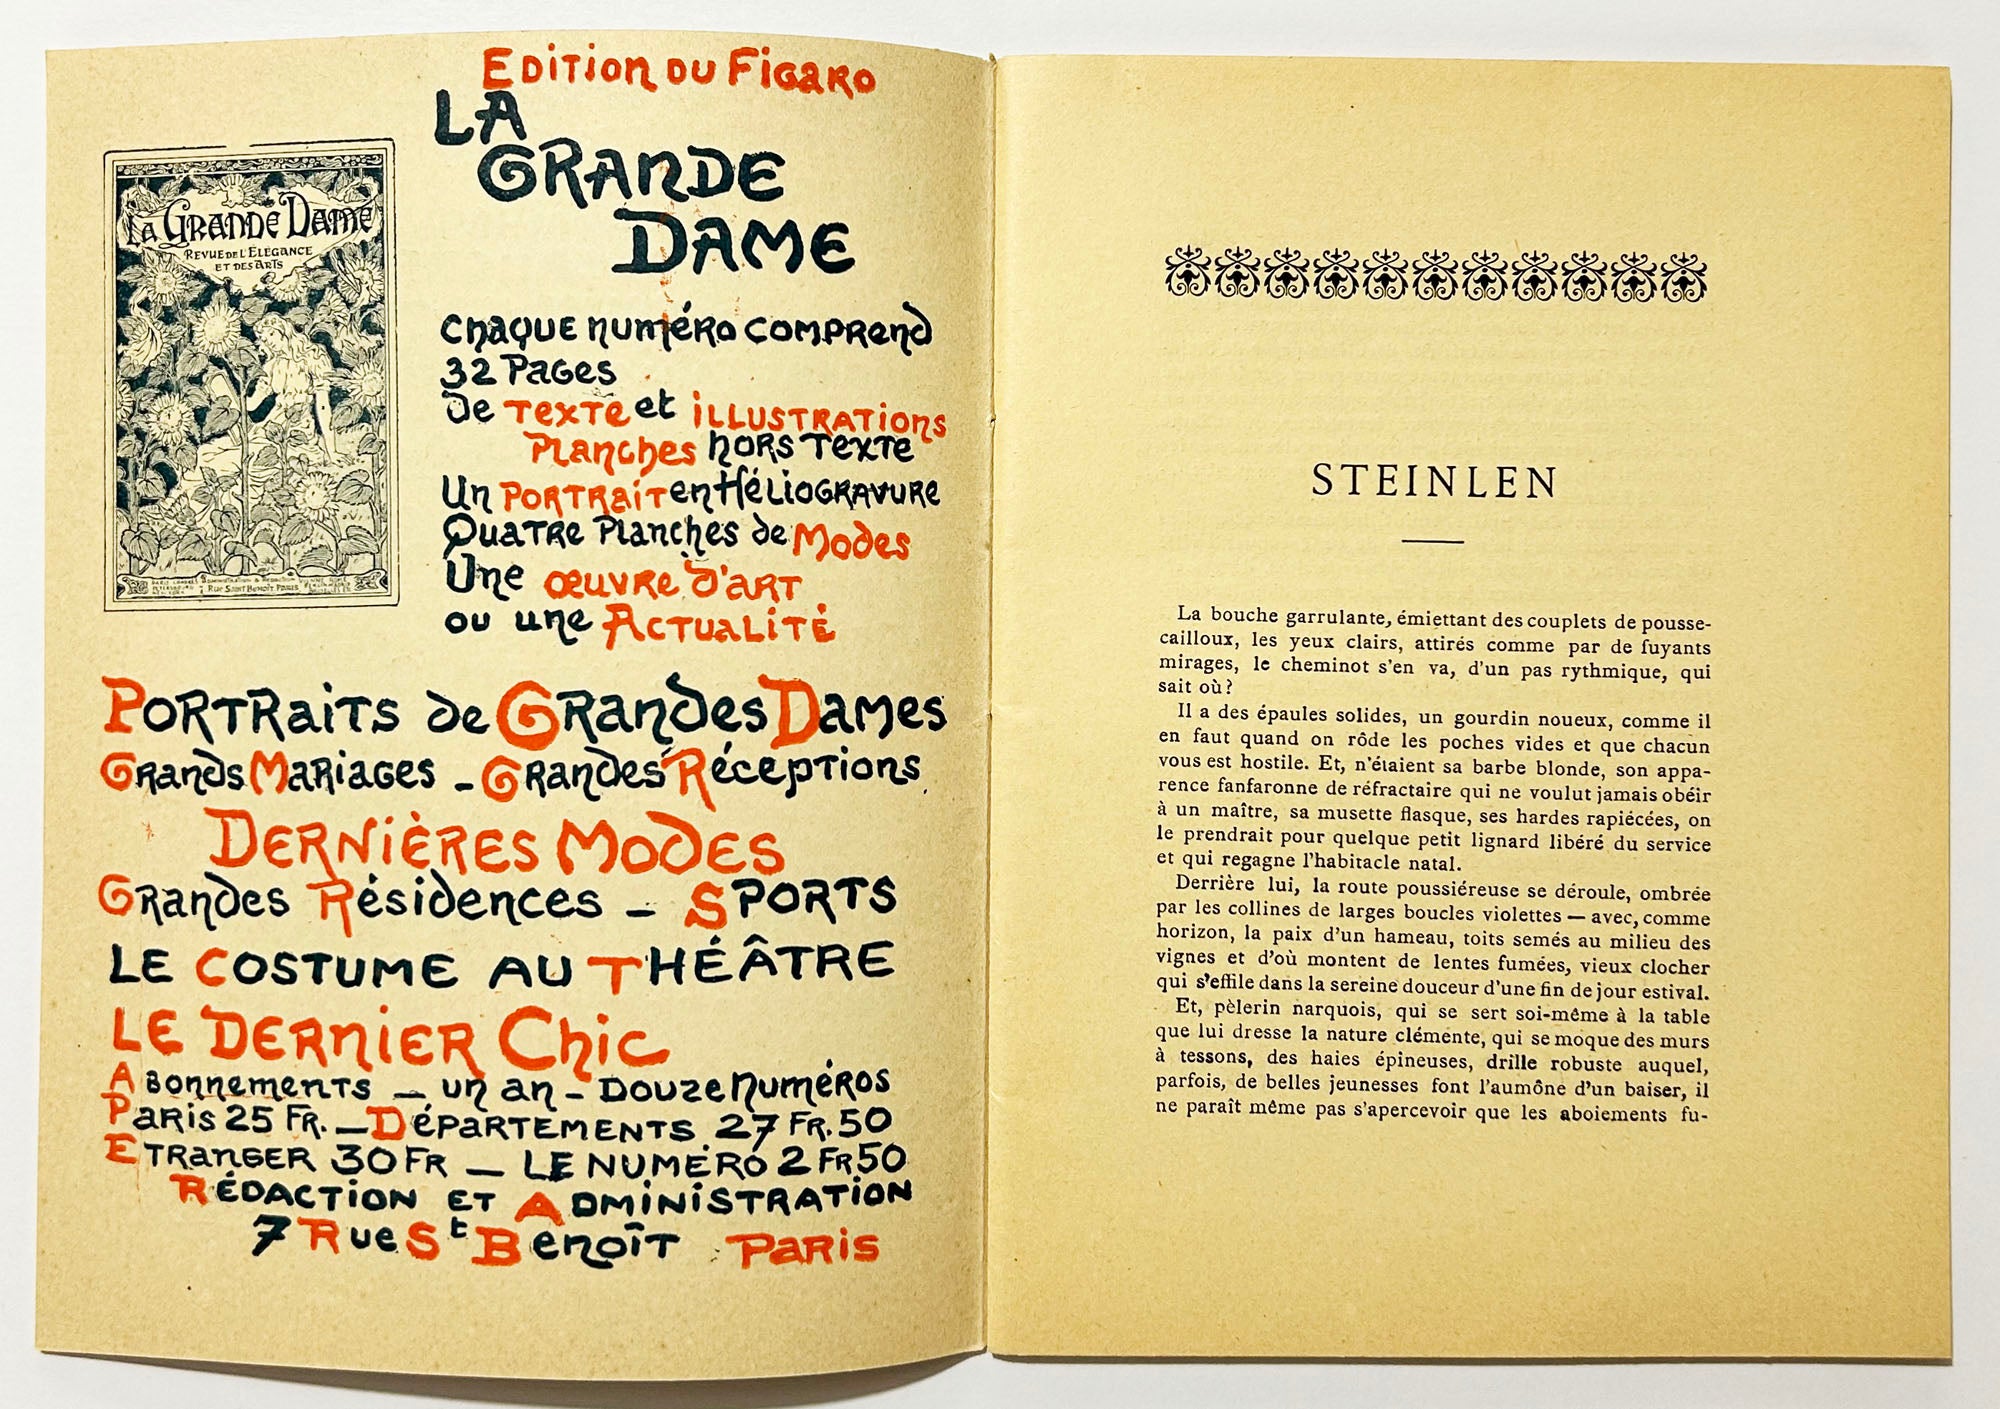 Edition du Figaro
LA
GRANDE
DAME
La Grande Dame
Revue de l'Élégance
et des Arts
Rue Saint Benoît Paris
Chaque numéro comprend
32 Pages
de Texte et illustrations
Planches hors texte
Un portrait en Héliogravure
Quatre Planches de Modes
Une œuvre d'art
ou une Actualité
Portraits de Grandes Dames
Grands Mariages - Grandes Réceptions
Dernières Modes
Grandes Résidences - Sports
Le Costume au Théâtre
Le Dernier Chic
Abonnements - un an - douze numéros
Paris 25 Fr. - Départements 27 Fr. 50
Etranger 30 Fr - Le numéro 2 Fr 50
Rédaction et Administration
7 Rue St Benoît Paris
STEINLEN
La bouche garrulante, émiettant des couplets de pousse-
cailloux, les yeux clairs, attirés comme par de fuyants
mirages, le cheminot s'en va, d'un pas rythmique, qui
sait où?
Il a des épaules solides, un gourdin noueux, comme il
en faut quand on rôde les poches vides et que chacun
vous est hostile. Et, n'étaient sa barbe blonde, son appa-
rence fanfaronne de réfractaire qui ne voulut jamais obéir
à un maître, sa musette flasque, ses hardes rapiécées, on
le prendrait pour quelque petit lignard libéré du service
et qui regagne l'habitacle natal.
Derrière lui, la route poussiéreuse se déroule, ombrée
par les collines de larges boucles violettes — avec, comme
horizon, la paix d'un hameau, toits semés au milieu des
vignes et d'où montent de lentes fumées, vieux clocher
qui s'effile dans la sereine douceur d'une fin de jour estival.
Et, pèlerin narquois, qui se sert soi-même à la table
que lui dresse la nature clémente, qui se moque des murs
à tessons, des haies épineuses, drille robuste auquel,
parfois, de belles jeunesses font l'aumône d'un baiser, il
ne paraît même pas s'apercevoir que les aboiements fu-